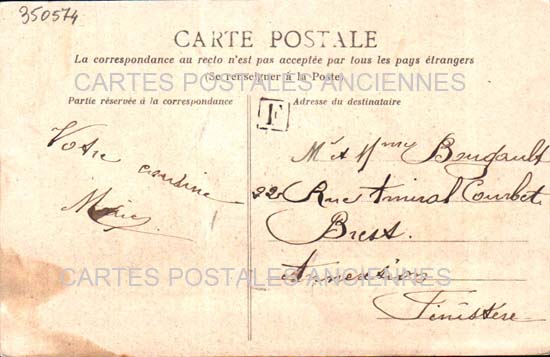 350574
CARTE POSTALE
La correspondance au recto n'est pas acceptée par tous les pays étrangers
(Se renseigner à la Poste)
CARTES POSTALES ANCIENNES
Partie réservée à la correspondance
Adresse du destinataire
F
Votre cousine
Mr et Mme
22 Rue Amiral Courbet
Brest.
Annexion
Finistère
CARTES POSTALES ANCIENNES